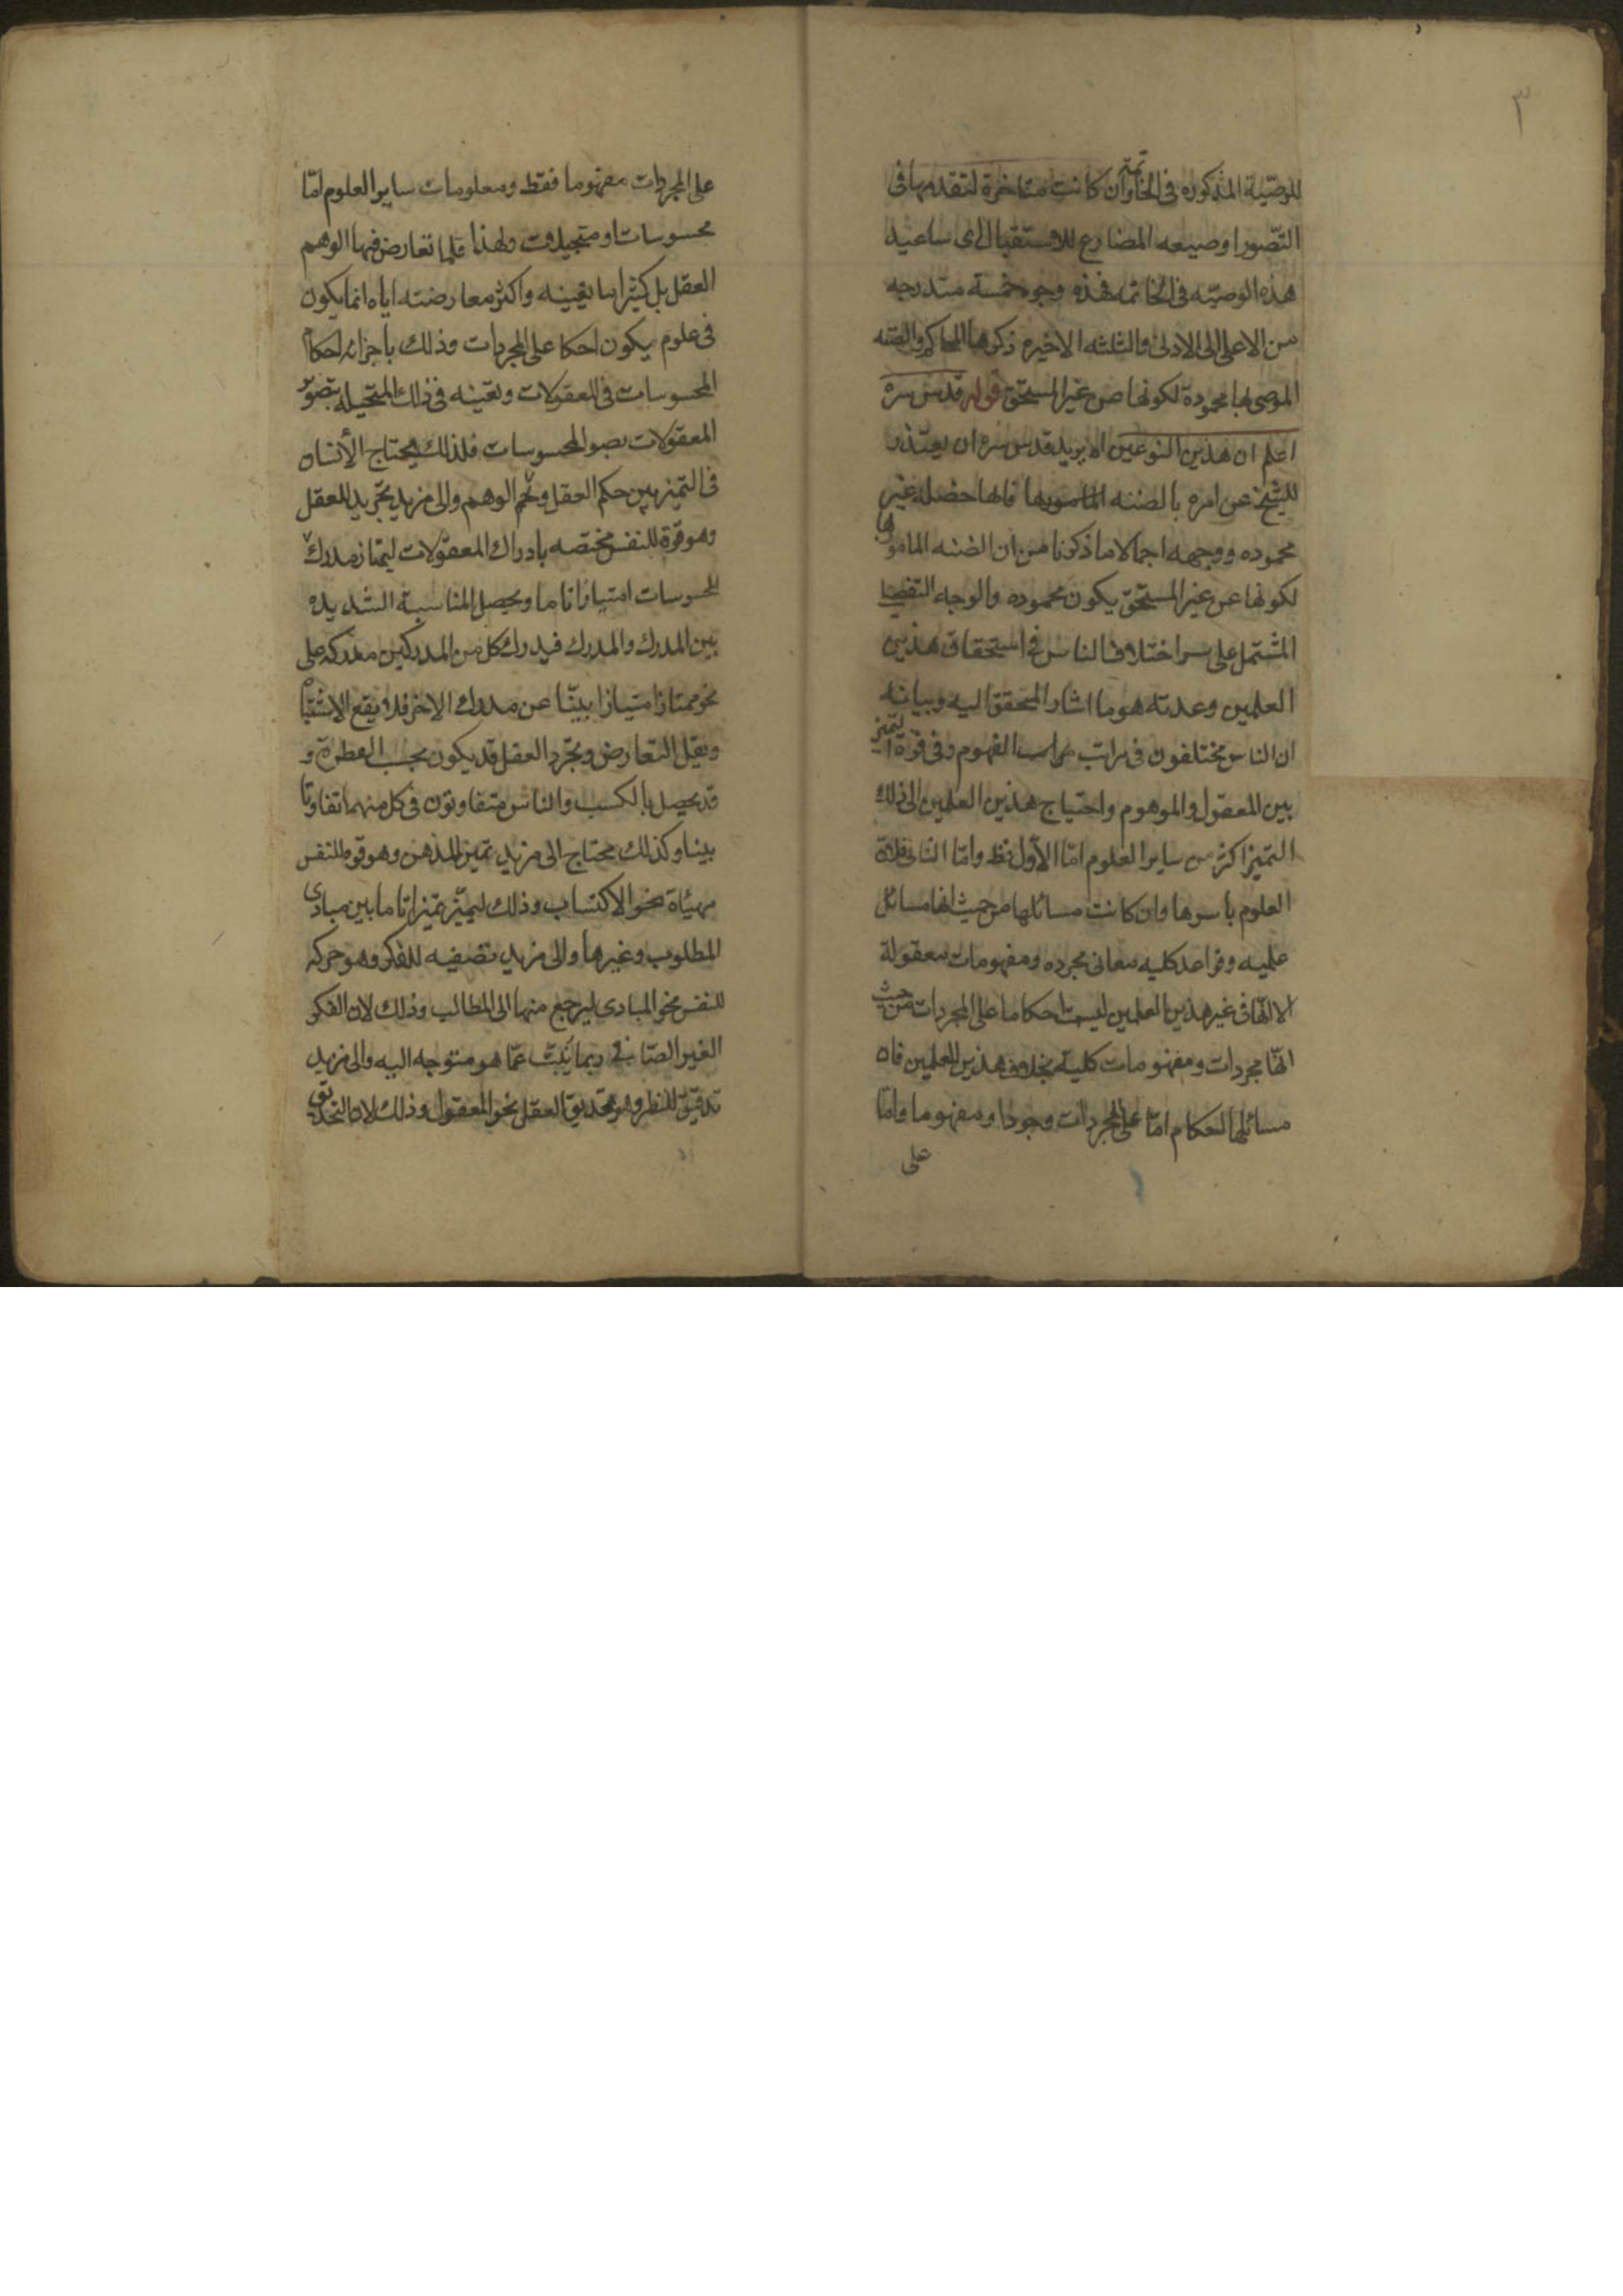 ٣
للوصيّة المذكوره فى الخاتمة وان كانت متاخرة لتقدمها فى
التّصور او صيغه المضارع للاستقبال اى ساعيد
هذه الوصيّه فى الخاتمه فهذه وجوه خمسة متدرجه
من الاعلى الى الادنى والثلثه الاخيره ذكرها المحاكم والضنه
الموصى بها محمودة لكونها عن غير المستحق قوله قدس سره
اعلم ان هذين النوعين الا يريد قدس سره ان يعتذر
للشيخ عن امره بالضنه المامور بها فانها خصلة غير
محموده ووجهه اجمالا ما ذكرنا من ان الضنه المامور بها
لكونها عن غير المستحق يكون محموده والوجه التفصيلى
المشتمل على سر اختلاف الناس فى استحقاق هذين
العلمين وعدمه هو ما اشار المحقق اليه وبيانه
ان الناس مختلفون فى مراتب الفهوم وفى قوة التميز
بين المعقول والموهوم واحتياج هذين العلمين الى ذلك
التميز اكثر من ساير العلوم امّا الاوّل فظ وامّا الثانى فلان
العلوم باسرها وان كانت مسائلها من حيث انها مسائل
علميه وقواعد كليه معانى مجرده ومفهومات معقولة
الا انّها فى غير هذين العلمين ليست احكاما على المجردات من حيث
انّها مجردات ومفهومات كليّة بخلاف هذين العلمين فان
مسائلها احكام امّا على المجردات وجودا ومفهوما وامّا
على
على المجردات مفهوما فقط ومعلومات ساير العلوم امّا
محسوسات او متخيلات ولهذا قلما تعارض فيها الوهم
العقل بل كثيرا ما يعينه واكثر معارضته اياه انما يكون
فى علوم يكون احكا على المجردات وذلك باجراء احكام
المحسوسات فى المعقولات وتعينه فى ذلك المتخيله بتصوّر
المعقولات بصور المحسوسات فلذلك يحتاج الأنسان
فى التميز بين حكم العقل وحكم الوهم والى مزيد تجريد للعقل
وهو قوّة للنفس مختصه بادراك المعقولات ليمتاز مدرك
المحسوسات امتيازا تاما ويحصل المناسبة الشديده
بين المدرك والمدرك فيدرك كل من المدركين مدركه على
نحو ممتاز امتيازا بيّنا عن مدرك الاخر فلا يقع الاشتباه
ويقل التعارض وتجرد العقل قد يكون بحسب الفطرة و
قد يحصل بالكسب والناس متفاوتون فى كل منهما تفاوتا
بينا وكذلك محتاج الى مزيد تميز للذهن وهو قوة للنفس
مهيئاة نحو الاكتساب وذلك ليميّز تميزا تاما بين مبادى
المطلوب وغيرها والى مزيد تصفيه للفكر وهو حركه
للنفس نحو المبادى ليرجع منها الى المطالب وذلك لان الفكر
الغير الصّافى ربما عمّا هو متوجه اليه والى مزيد
تدقيق للنظر وهو تحديق العقل نحو المعقول وذلك لان التحديق